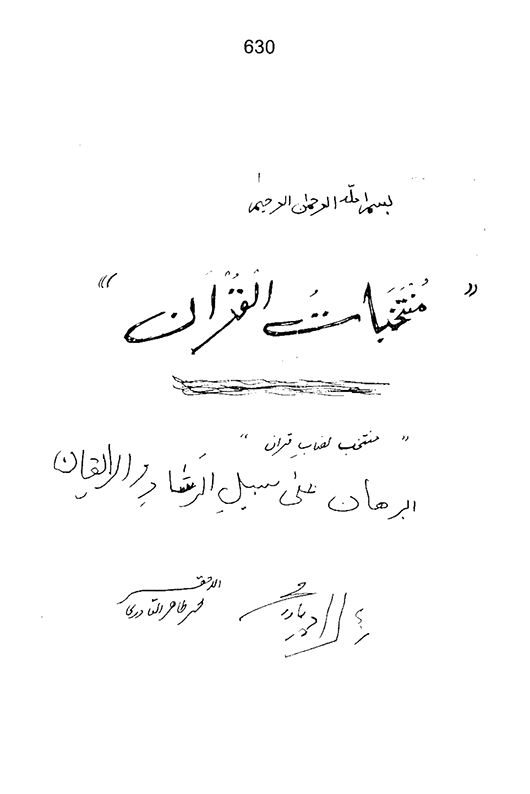 630
بسم الله الرحمن الرحيم
” مُنْتَخَباتُ الْقُرْآن “
” منتخب نصاب قرآن “
البرهان على سبيلِ الرَشادِ و الايقان
محمد طاہر القادری